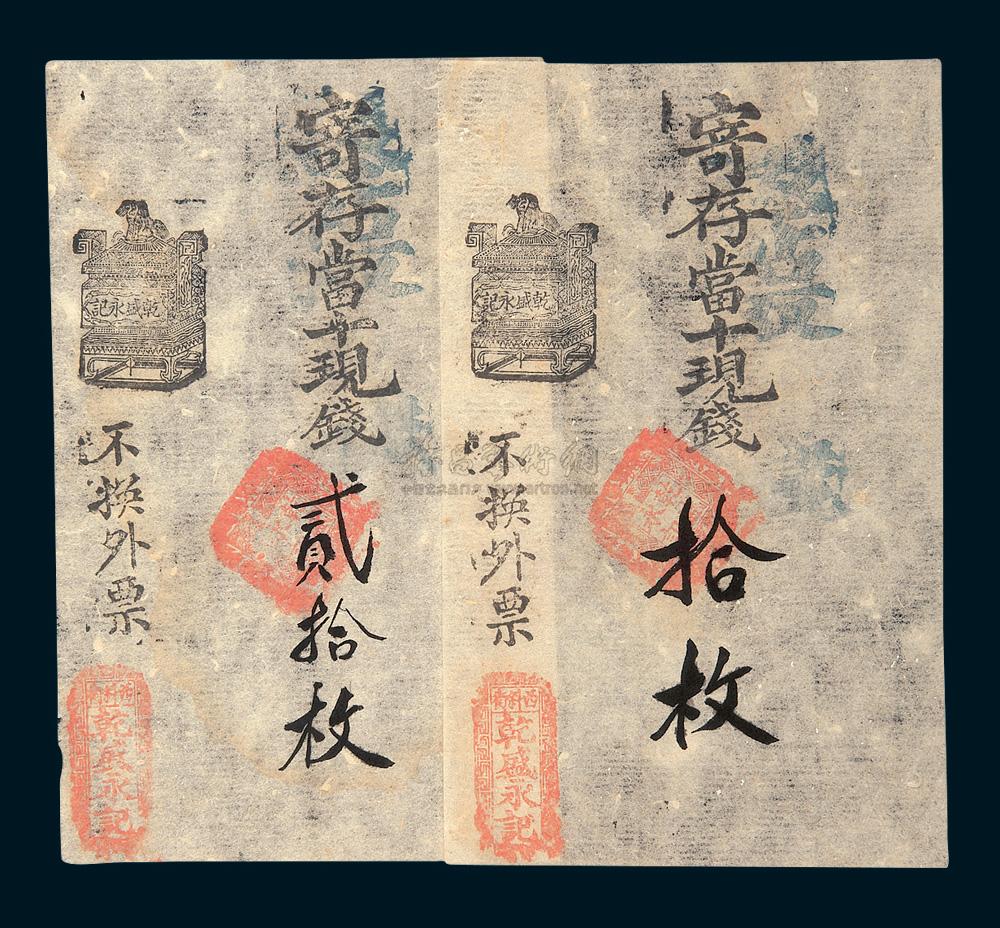 寄存當十現錢
拾枚
乾盛永記
不换外票
乾盛永記
寄存當十現錢
貳拾枚
乾盛永記
不换外票
乾盛永記